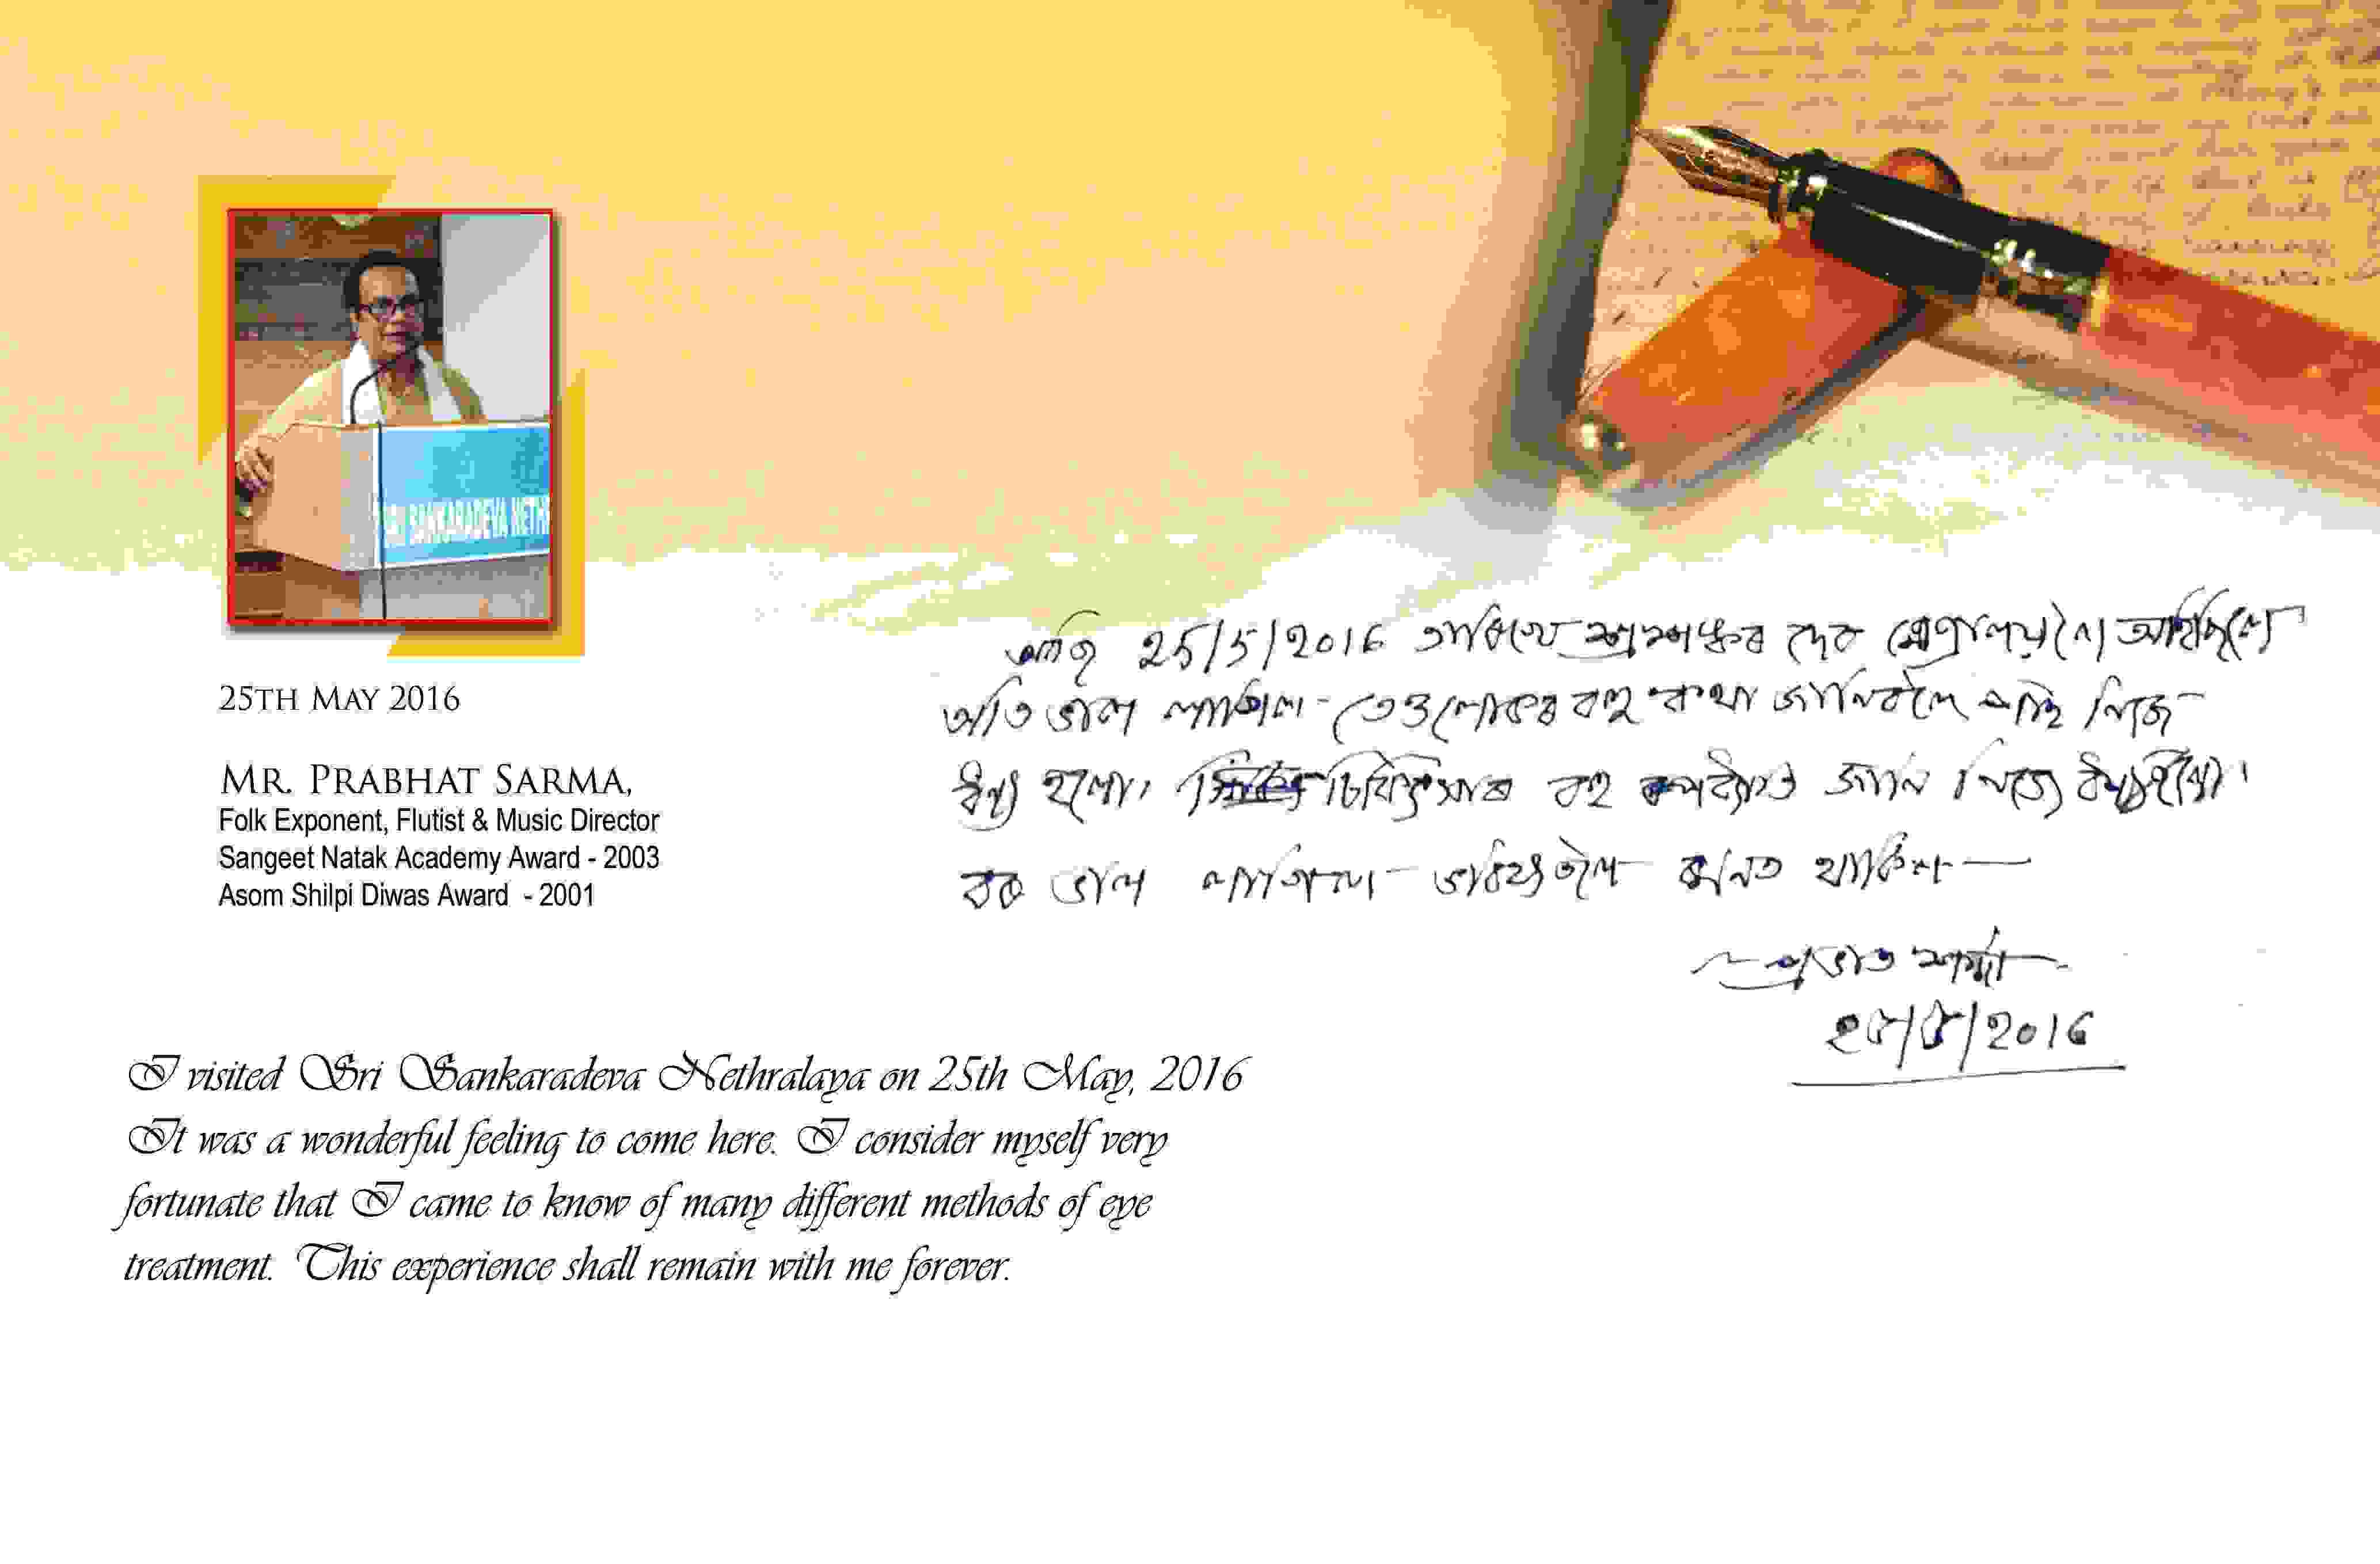 SRI SANKARADEVA NETH
25TH MAY 2016
MR. PRABHAT SARMA,
Folk Exponent, Flutist & Music Director
Sangeet Natak Academy Award - 2003
Asom Shilpi Diwas Award - 2001
আজি 25/5/2016 তাৰিখে শ্ৰীশঙ্কৰ দেৱ নেত্ৰালয়লৈ আহিছিলো
অতি ভাল লাগিল - তেওলোকৰ বহু কথা জানিবলৈ পাই নিজে
ধন্য হলো। চিকিৎসাৰ বহু জানি নিজে
বৰ ভাল লাগিল - ভৱিষ্যতলৈ মনত থাকিল —
প্ৰভাত শৰ্মা
২৫/৫/2016
I visited Sri Sankaradeva Nethralaya on 25th May, 2016
It was a wonderful feeling to come here. I consider myself very
fortunate that I came to know of many different methods of eye
treatment. This experience shall remain with me forever.